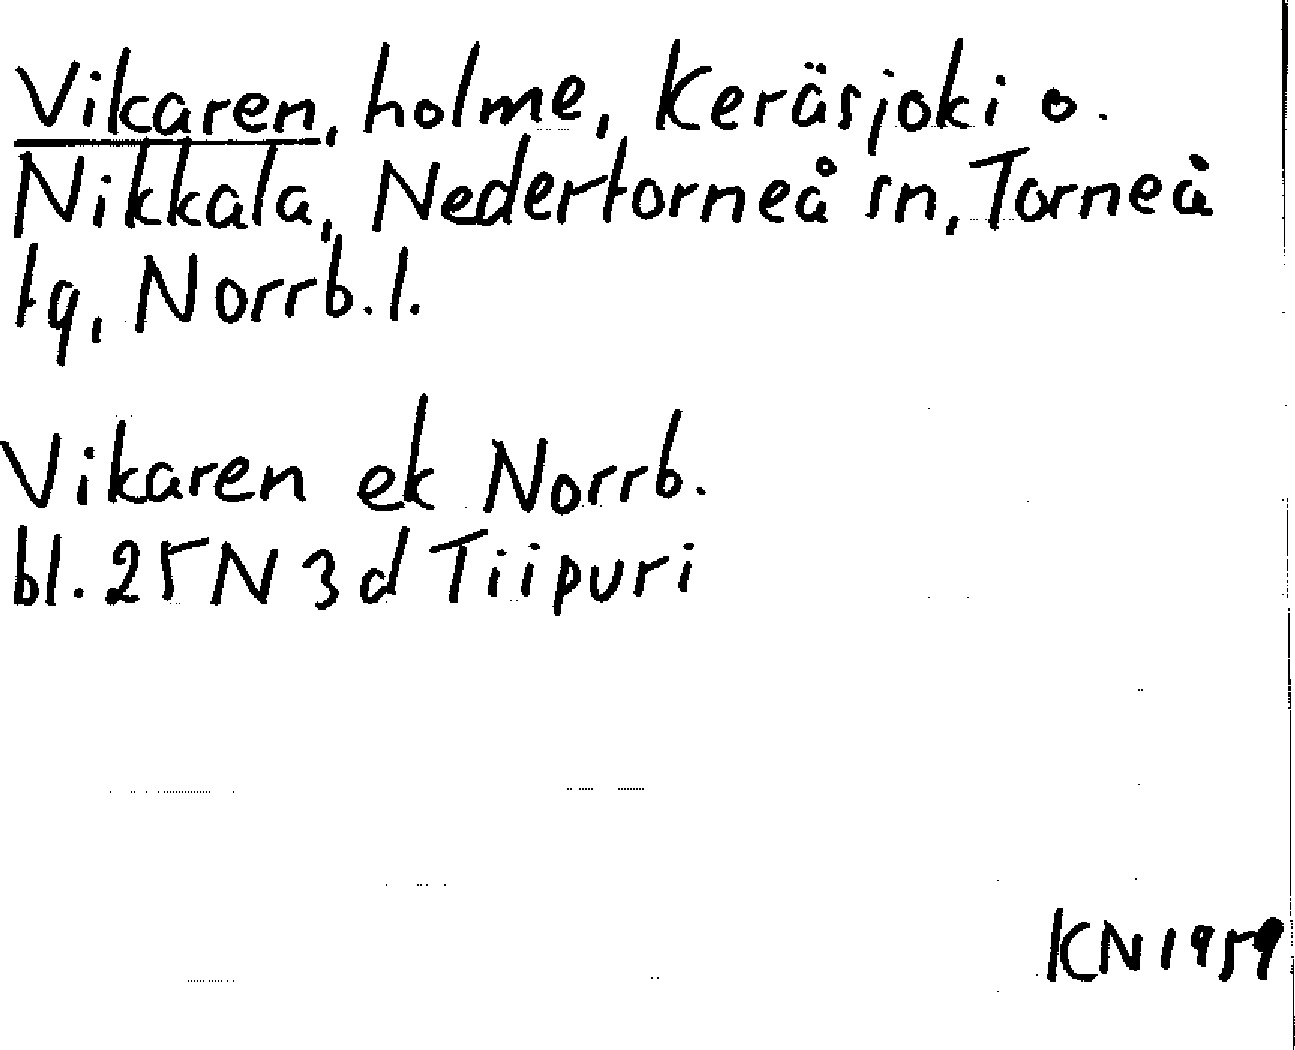 Vikaren, holme, Keräsjoki o.
Nikkala, Nedertorneå sn, Torneå
tg, Norrb. l.
Vikaren ek Norrb.
bl. 25 N 3 d Tiipuri
KN 1959